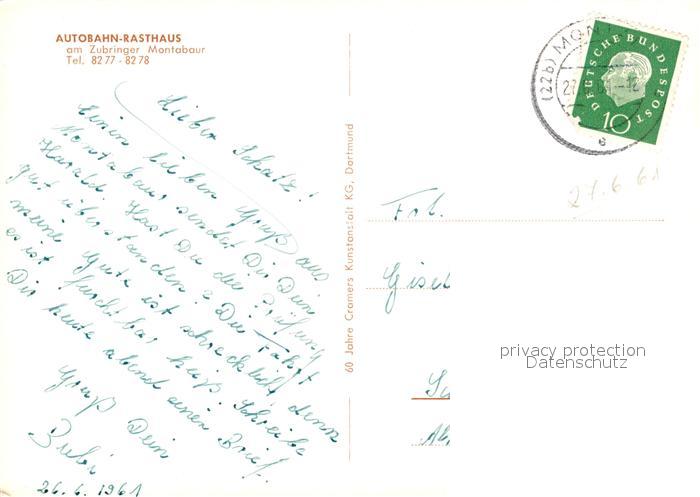 AUTOBAHN-RASTHAUS
am Zubringer Montabaur
Tel. 8277 - 8278
Lieber Schatz!
Einen lieben Gruß aus
Montabaur sendet Dir Dein
Harald. Hast Du die Prüfung
gut überstanden? Die Fahrt
meine Gute ist schrecklich denn
es ist furchtbar heiß. Schreibe
Dir heute abend einen Brief.
Gruß Dein
Bubi
26.6.1961
60 Jahre Cramers Kunstanstalt KG, Dortmund
(22b) MONT
27
DEUTSCHE BUNDESPOST
10
e
27.6.61
Frl.
Gisel
privacy protection
Datenschutz